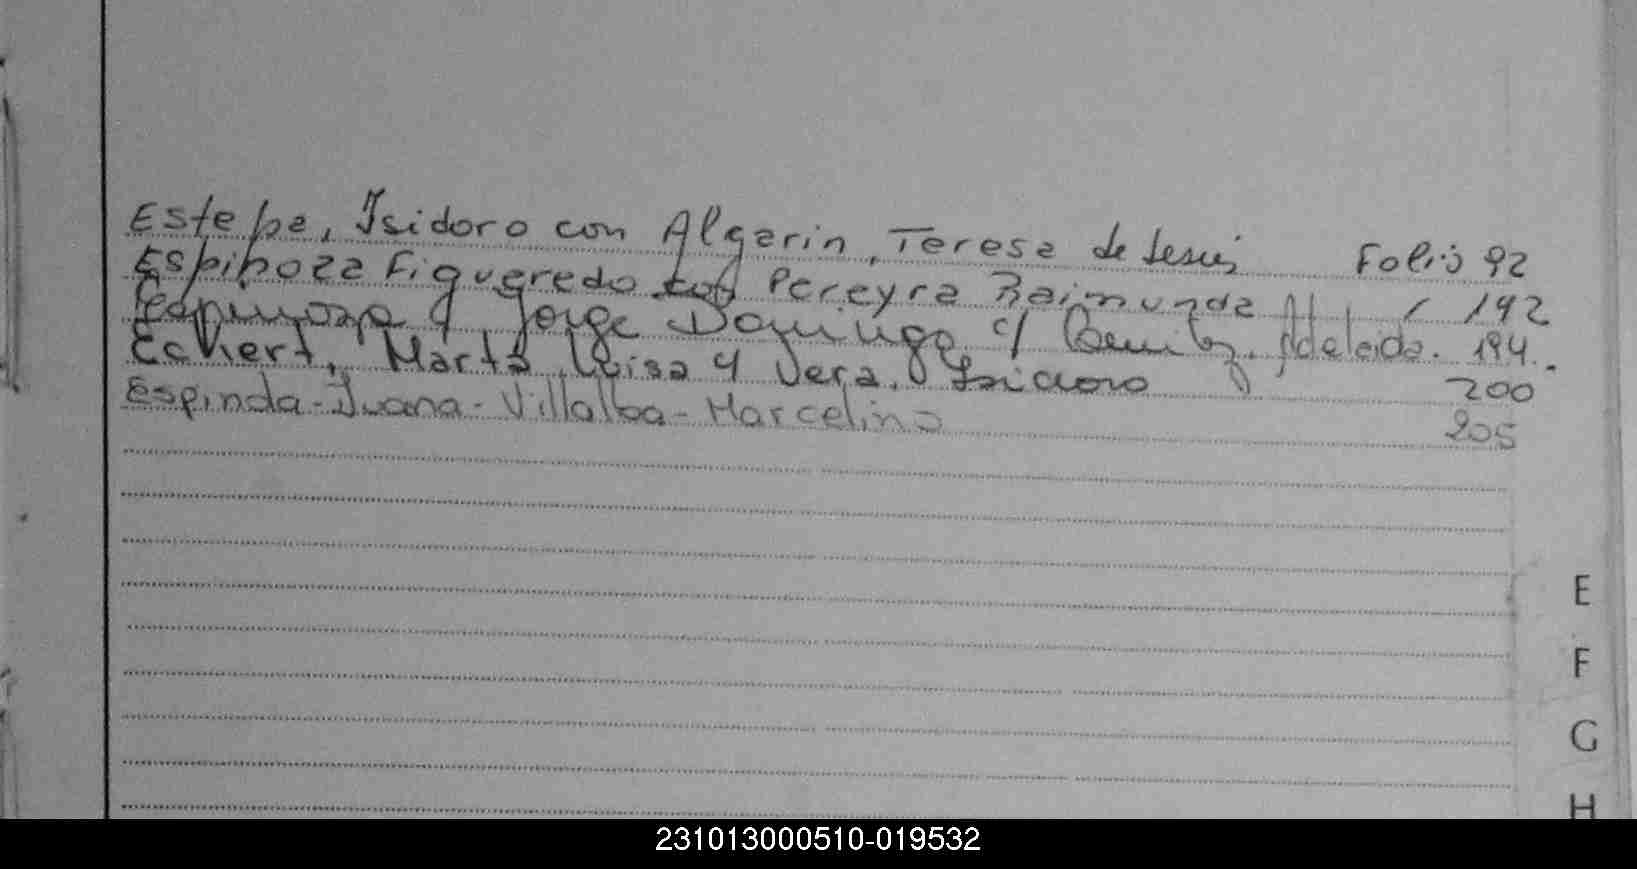 Estepa, Isidoro con Algarin, Teresa de Jesús Folio 92
Espinoza Figueredo con Pereyra Raimunda / 192
Espinoza Jorge Domingo c/ Benitez, Adelaida. 194.
Eckert, Marta Luisa y Vera, Isidoro 200
Espinda - Juana - Villalba - Marcelino 205
E
F
G
H
231013000510-019532